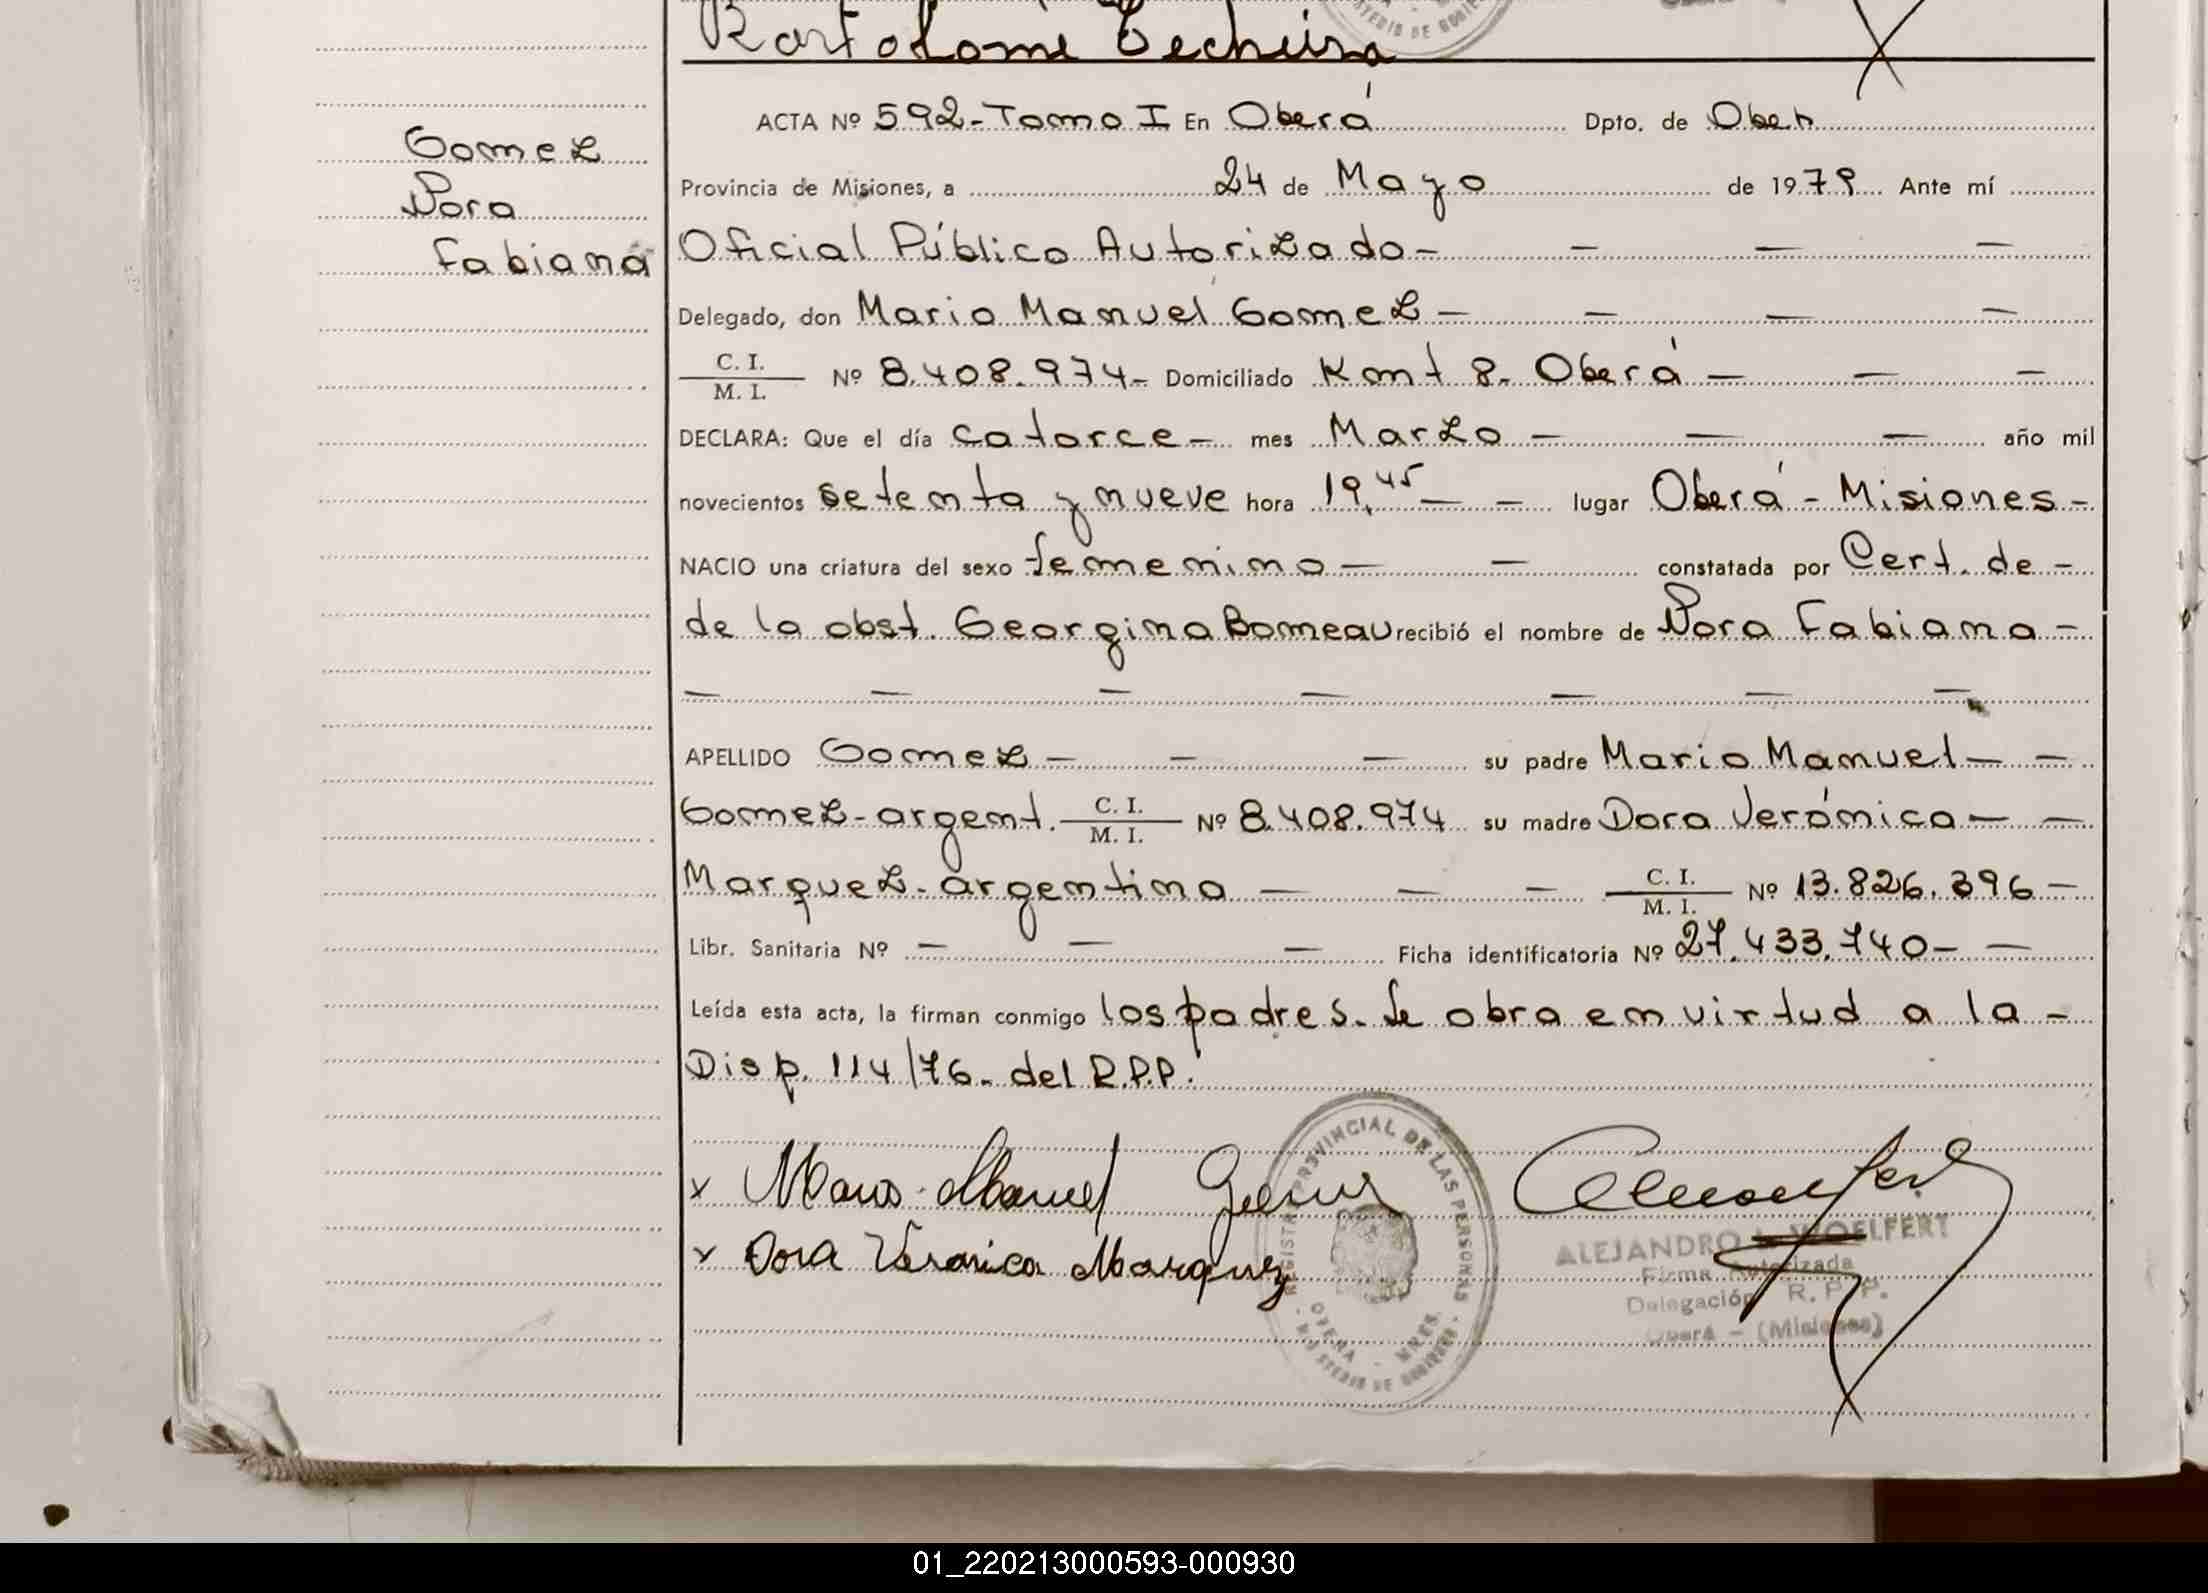 Bartolomé Techeira
ACTA Nº 592-Tomo I En Oberá Dpto. de Oberá
Gomez
Dora
Fabiana
Provincia de Misiones, a 24 de Mayo de 1979 Ante mí
Oficial Público Autorizado-
Delegado, don Mario Manuel Gomez-
C. I.
M. I. Nº 8.408.974- Domiciliado Kmt 8. Oberá-
DECLARA: Que el día catorce- mes Marzo- año mil
novecientos setenta y nueve hora 19,45- lugar Oberá-Misiones-
NACIO una criatura del sexo femenino- constatada por Cert. de-
de la obst. Georgina Bomeau recibió el nombre de Dora Fabiana-
APELLIDO Gomez- su padre Mario Manuel-
Gomez-argent. C. I.
M. I. Nº 8.408.974 su madre Dora Verónica-
Marquez-argentina- C. I.
M. I. Nº 13.826.396-
Libr. Sanitaria Nº - Ficha identificatoria Nº 27.433.740-
Leída esta acta, la firman conmigo los padres. Se obra en virtud a la-
Disp. 114/76- del R.P.P.
x Mario Manuel Gomez
x Dora Veronica Marquez
REGISTRO PROVINCIAL DE LAS PERSONAS
OBERA - MNES.
MINISTERIO DE GOBIERNO
ALEJANDRO L. WOELFERT
Firma Autorizada
Delegación R. P. P.
Oberá - (Misiones)
01_220213000593-000930